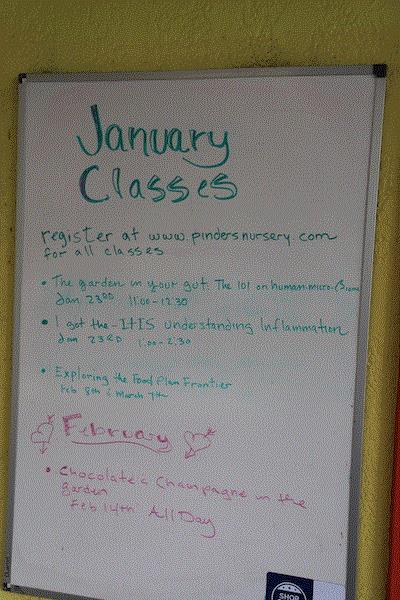 January
Classes
register at www.pindersnursery.com
for all classes
• The garden in your gut: The 101 on human-micro-Biome
Jan 23RD 11:00-12:30
• I got the -ITIS understanding Inflammation
Jan 23RD 1:00-2:30
• Exploring the Food Plan Frontier
Feb 8th & March 7th
February
• Chocolate & Champagne in the
garden
Feb 14th All Day
SHOP